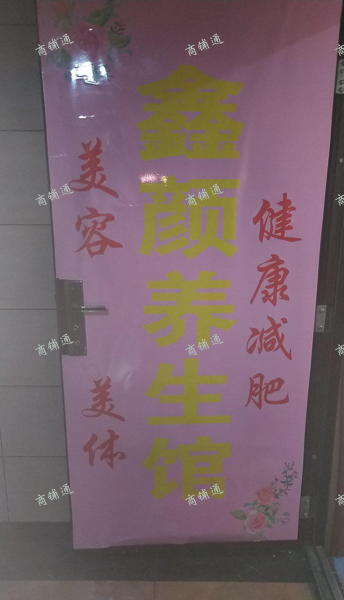 鑫颜养生馆
美容
美体
健康减肥
商铺通
商铺通
商铺通
商铺通
商铺通
商铺通
商铺通
商铺通